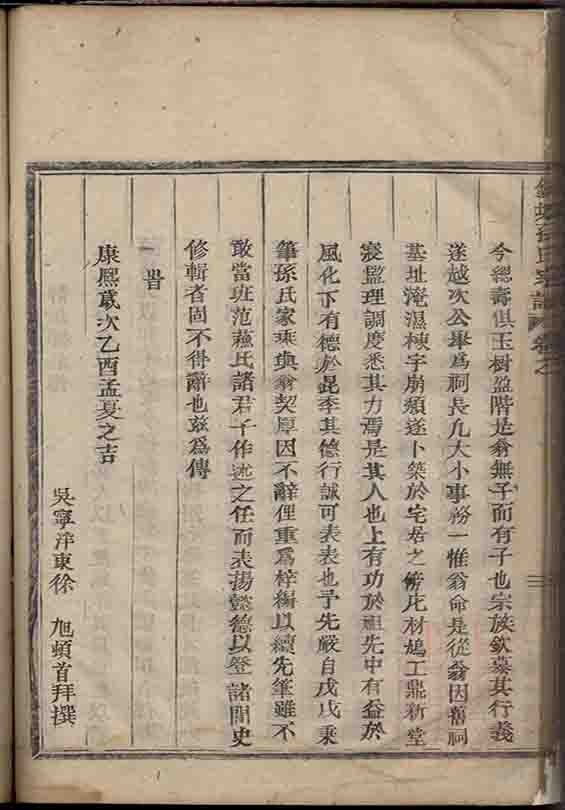 孫氏宗譜 卷之
今繼壽俱玉樹盈階是翁無子而有子也宗族欽羨其行義
遂越次公舉爲祠長凡大小事務一惟翁命是從翁因舊祠
基址淹濕棟宇崩頹遂卜築於宅居之傍庀材鳩工鼎新堂
寢監理調度悉其力焉是其人也上有功於祖先中有益於
風化下有德於昆季其德行誠可表表也予先嚴自戊戌秉
筆孫氏家乘與翁契厚因不辭俚重爲梓編以續先筆雖不
敢當班范蘇氏諸君子作述之任而表揚懿德以登諸閒史
修輯者固不得辭也玆爲傳
旹
康熙歲次乙酉孟夏之吉
吳寧泮東徐 旭頓首拜撰